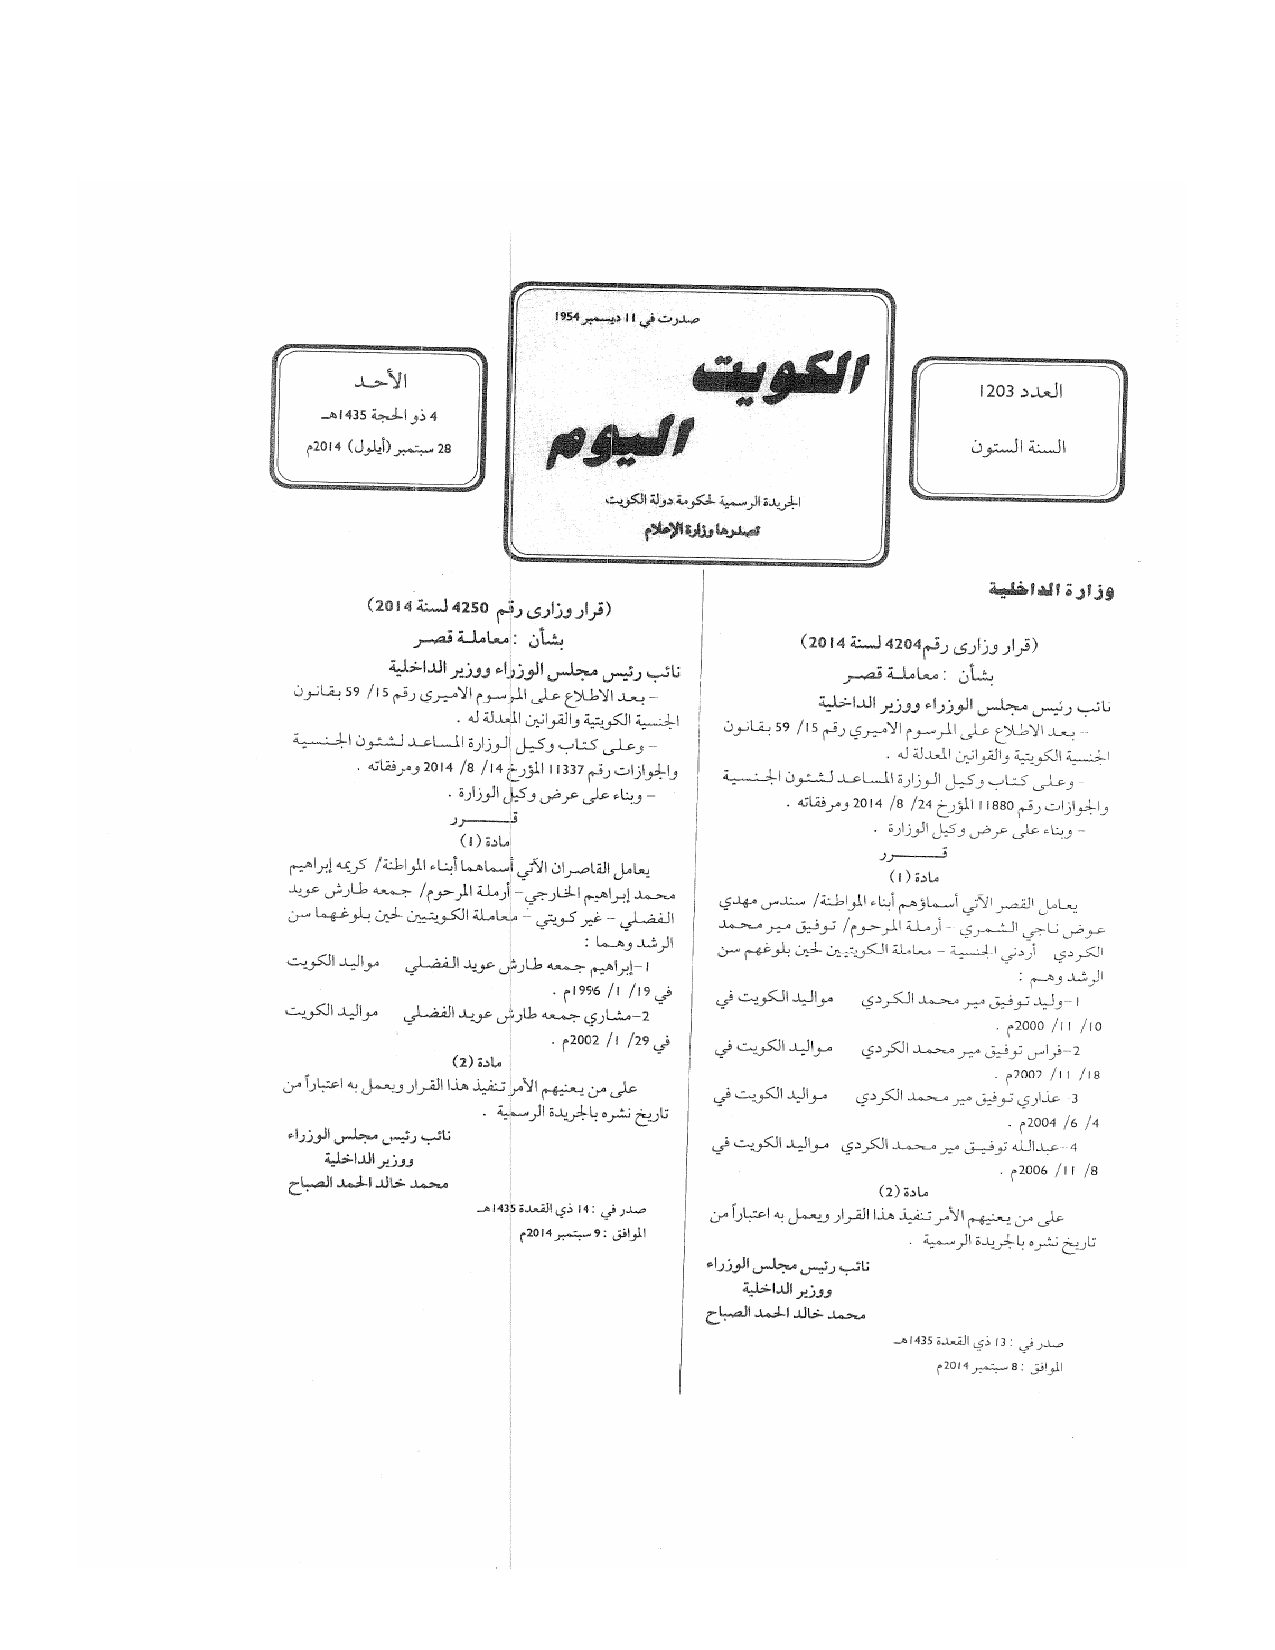 العدد 1203
السنة الستون
صدرت في 11 ديسمبر 1954
الكويت
اليوم
الجريدة الرسمية لحكومة دولة الكويت
تصدرها وزارة الإعلام
الأحد
4 ذو الحجة 1435هـ
28 سبتمبر (أيلول) 2014م
وزارة الداخلية
(قرار وزارى رقم 4204 لسنة 2014)
بشأن : معاملة قصر
نائب رئيس مجلس الوزراء ووزير الداخلية
- بعد الاطلاع على المرسوم الاميري رقم 15/ 59 بقانون
الجنسية الكويتية والقوانين المعدلة له .
- وعلى كتاب وكيل الوزارة المساعد لشئون الجنسية
والجوازات رقم 11880 المؤرخ 24/ 8/ 2014 ومرفقاته .
- وبناء على عرض وكيل الوزارة .
قـــــرر
مادة (1)
يعامل القصر الآتي أسماؤهم أبناء المواطنة/ سندس مهدي
عوض ناجي الشمري - أرملة المرحوم/ توفيق مير محمد
الكردي أردني الجنسية - معاملة الكويتيين لحين بلوغهم سن
الرشد وهم :
1-وليد توفيق مير محمد الكردي مواليد الكويت في
10/ 11/ 2000م .
2-فراس توفيق مير محمد الكردي مواليد الكويت في
18/ 11/ 2002م .
3 عذاري توفيق مير محمد الكردي مواليد الكويت في
4/ 6/ 2004م .
4-عبدالله توفيق مير محمد الكردي مواليد الكويت في
8/ 11/ 2006م .
مادة (2)
على من يعنيهم الأمر تنفيذ هذا القرار ويعمل به اعتباراً من
تاريخ نشره بالجريدة الرسمية .
نائب رئيس مجلس الوزراء
ووزير الداخلية
محمد خالد الحمد الصباح
صدر في : 13 ذي القعدة 1435هـ
الموافق : 8 سبتمبر 2014م
(قرار وزارى رقم 4250 لسنة 2014)
بشأن : معاملة قصر
نائب رئيس مجلس الوزراء ووزير الداخلية
- بعد الاطلاع على المرسوم الاميري رقم 15/ 59 بقانون
الجنسية الكويتية والقوانين المعدلة له .
- وعلى كتاب وكيل الوزارة المساعد لشئون الجنسية
والجوازات رقم 11337 المؤرخ 14/ 8/ 2014 ومرفقاته .
- وبناء على عرض وكيل الوزارة .
قـــــرر
مادة (1)
يعامل القاصران الآتي أسماهما أبناء المواطنة/ كريمه إبراهيم
محمد إبراهيم الخارجي- أرملة المرحوم/ جمعه طارش عويد
الفضلي - غير كويتي - معاملة الكويتيين لحين بلوغهما سن
الرشد وهما :
1-إبراهيم جمعه طارش عويد الفضلي مواليد الكويت
في 19/ 1/ 1996م .
2-مشاري جمعه طارش عويد الفضلي مواليد الكويت
في 29/ 1/ 2002م .
مادة (2)
على من يعنيهم الأمر تنفيذ هذا القرار ويعمل به اعتباراً من
تاريخ نشره بالجريدة الرسمية .
نائب رئيس مجلس الوزراء
ووزير الداخلية
محمد خالد الحمد الصباح
صدر في : 14 ذي القعدة 1435هـ
الموافق : 9 سبتمبر 2014م